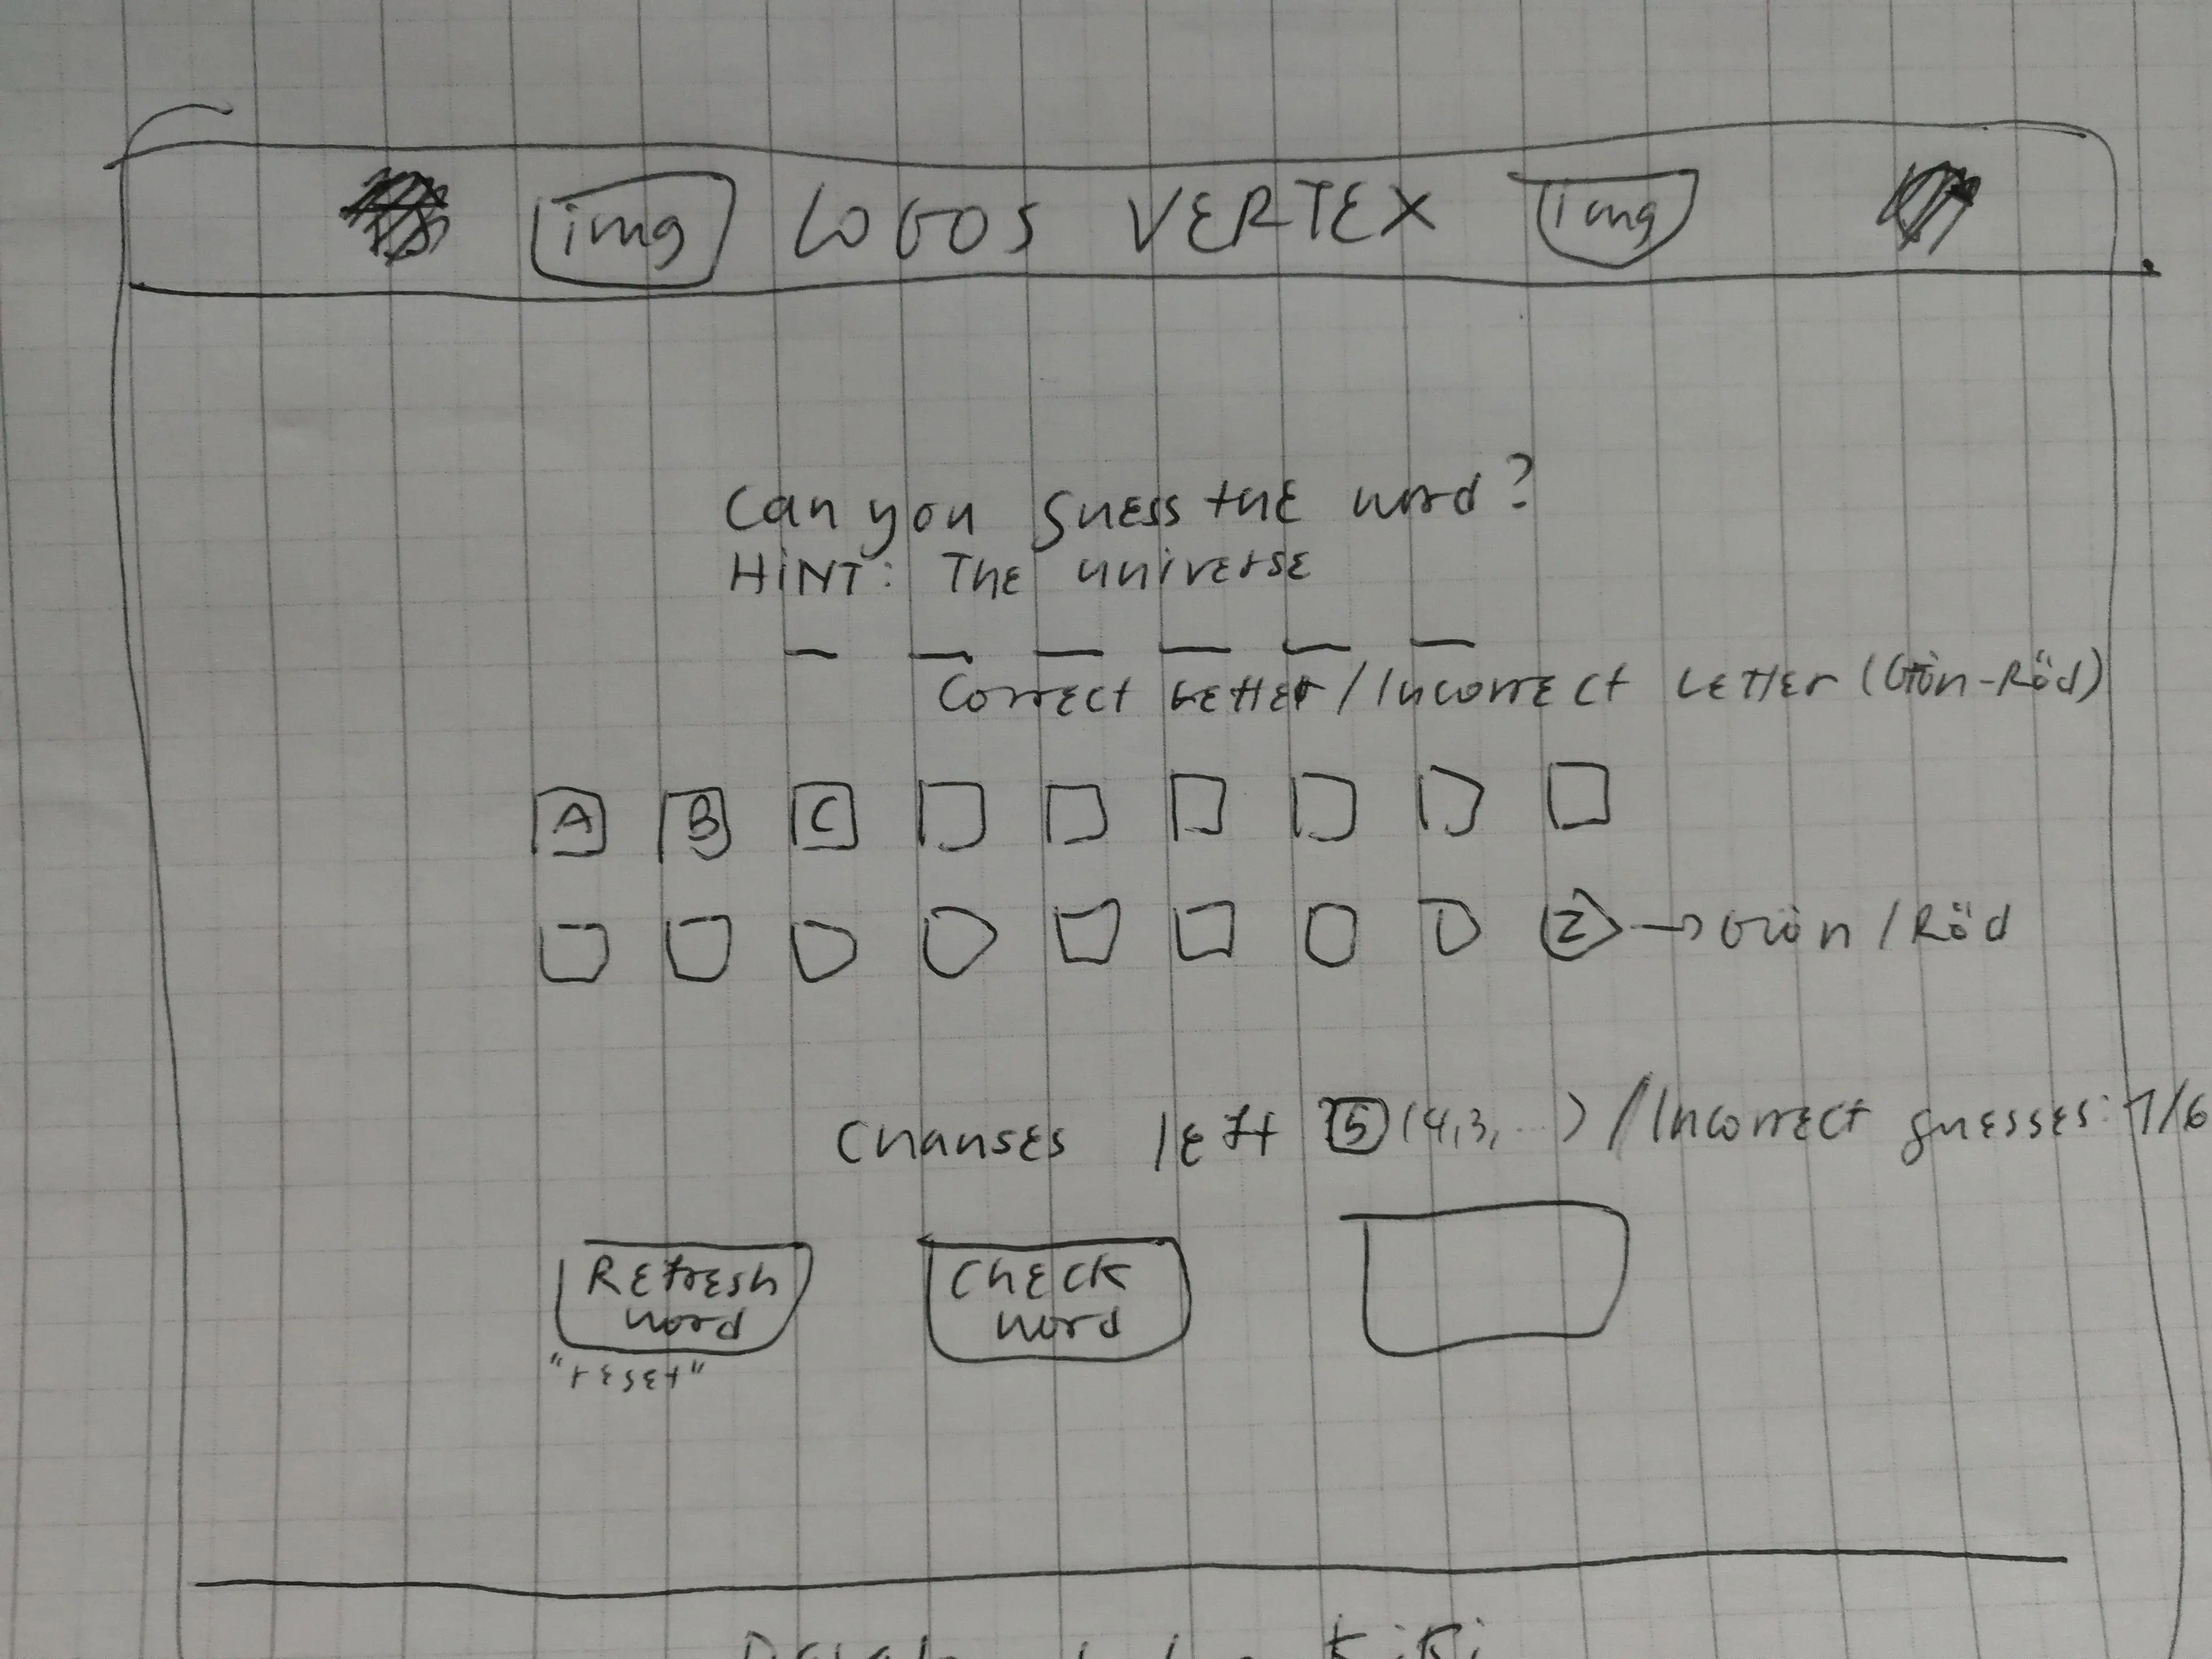 img LOGOS VERTEX img
Can you guess the word?
HINT: The universe
Correct Letter / Incorrect Letter (Grön-Röd)
A B C
Z → Grön / Röd
Chanses left 5 (4,3,...) / Incorrect guesses: 1/6
Refresh word
Check word
"reset"
KiKi